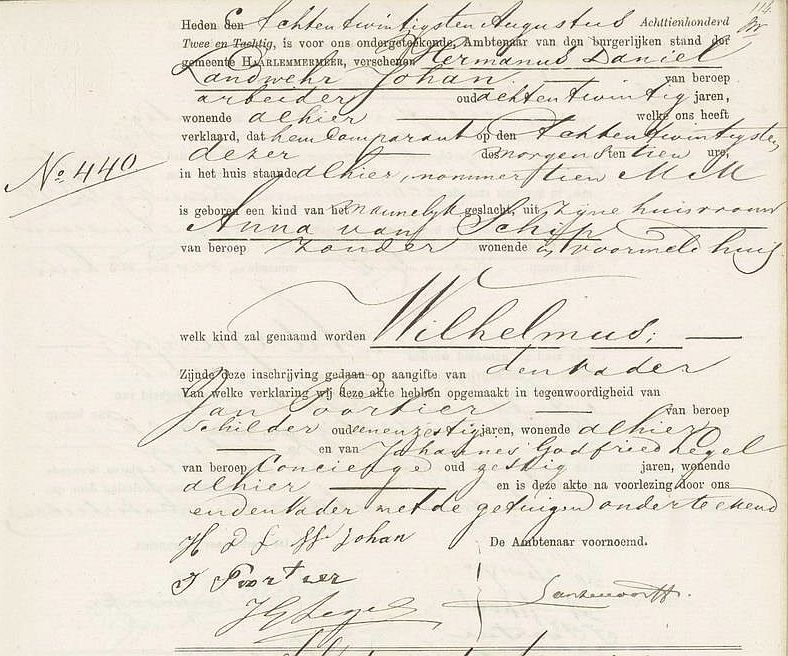 114
Heden den Achtentwintigsten Augustus Achttienhonderd
Twee en Tachtig, is voor ons ondergeteekende, Ambtenaar van den burgerlijken stand der
gemeente HAARLEMMERMEER, verschenen Hermanus Daniel
Landwehr Johan van beroep
arbeider oud achtentwintig jaren,
wonende alhier welke ons heeft
verklaard, dat hem Comparant op den Achtentwintigsten
dezer des morgens ten tien ure,
in het huis staande alhier, nommer tien M M
No. 440
is geboren een kind van het mannelijk geslacht, uit Zijne huisvrouw
Anna van Schip
van beroep zonder wonende in voormeld huis
welk kind zal genaamd worden Wilhelmus;
Zijnde deze inschrijving gedaan op aangifte van den vader
Van welke verklaring wij deze akte hebben opgemaakt in tegenwoordigheid van
Jan Poortier van beroep
Schilder oud eenenzestig jaren, wonende alhier
en van Johannes Godfried Legel
van beroep Concierge oud zestig jaren, wonende
alhier en is deze akte na voorlezing door ons
en den Vader met de getuigen onderteekend
H D L W Johan
De Ambtenaar voornoemd.
J Poortier
J G Legel